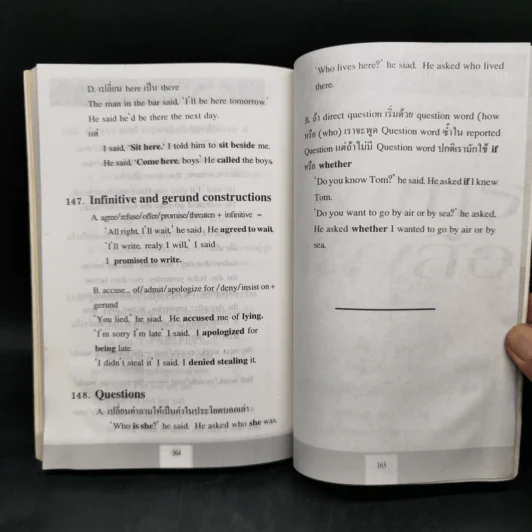 D. เปลี่ยน here เป็น there
The man in the bar said, 'I'll be here tomorrow.'
He said he'd be there the next day.
แต่
I said, 'Sit here.' I told him to sit beside me.
He said, 'Come here, boys.' He called the boys.
147. Infinitive and gerund constructions
A. agree/refuse/offer/promise/threaten + infinitive =
'All right, I'll wait,' he said. He agreed to wait.
'I'll write, realy I will,' I said
I promised to write.
B. accuse... of/admit/apologize for /deny/insist on +
gerund
'You lied,' he siad. He accused me of lying.
'I'm sorry I'm late' I said. I apologized for
being late.
'I didn't steal it' I said. I denied stealing it.
148. Questions
A. เปลี่ยนคำถามให้เป็นคำในประโยคบอกเล่า
'Who is she?' he said. He asked who she was.
164
'Who lives here?' he siad. He asked who lived
there.
B. ถ้า direct question เริ่มด้วย question word (how
หรือ (who) เราจะพูด Question word ซ้ำใน reported
Question แต่ถ้าไม่มี Question word ปกติเรามักใช้ if
หรือ whether
'Do you know Tom?' he said. He asked if I knew
Tom.
'Do you want to go by air or by sea?' he asked.
He asked whether I wanted to go by air or by
sea.
165